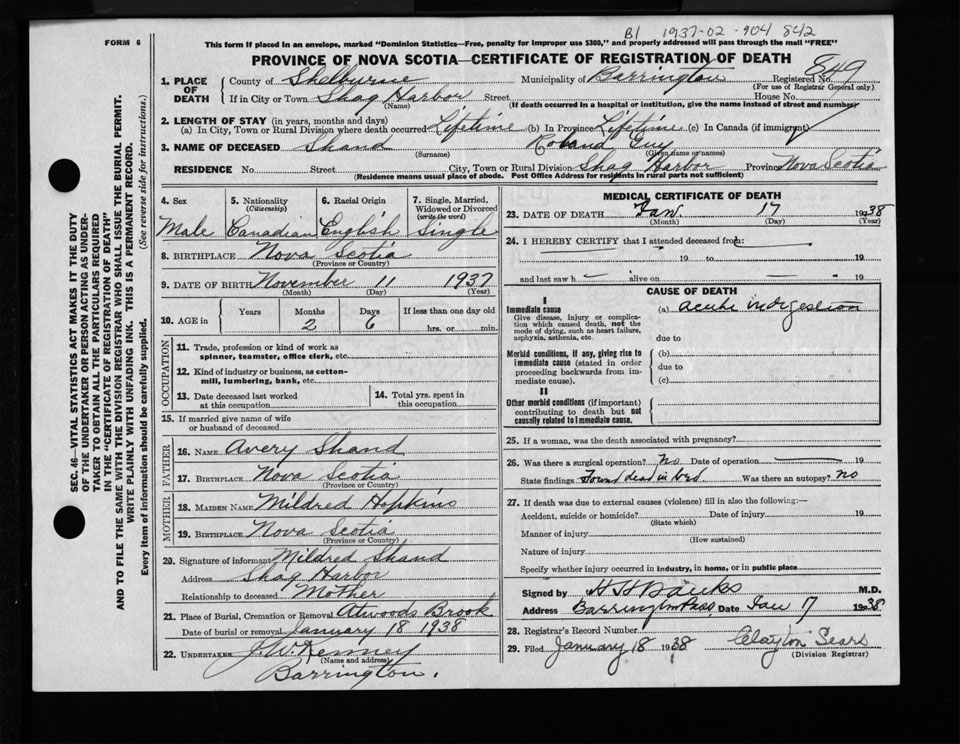 B1 1937-02-904 842
FORM 6
This form if placed in an envelope, marked "Dominion Statistics—Free, penalty for improper use $300," and properly addressed will pass through the mail "FREE"
PROVINCE OF NOVA SCOTIA—CERTIFICATE OF REGISTRATION OF DEATH
1. PLACE OF DEATH County of Shelburne Municipality of Barrington Registered No. 849
(For use of Registrar General only)
If in City or Town Shag Harbor Street House No.
(Name) (If death occurred in a hospital or institution, give the name instead of street and number)
2. LENGTH OF STAY (in years, months and days)
(a) In City, Town or Rural Division where death occurred Lifetime (b) In Province Lifetime (c) In Canada (if immigrant)
3. NAME OF DECEASED Shand Roland Guy
(Surname) (Given name or names)
RESIDENCE No. Street City, Town or Rural Division Shag Harbor Province Nova Scotia
(Residence means usual place of abode. Post Office Address for residents in rural parts not sufficient)
SEC. 46—VITAL STATISTICS ACT MAKES IT THE DUTY
OF THE UNDERTAKER OR PERSON ACTING AS UNDER-
TAKER TO OBTAIN ALL THE PARTICULARS REQUIRED
IN THE "CERTIFICATE OF REGISTRATION OF DEATH"
AND TO FILE THE SAME WITH THE DIVISION REGISTRAR WHO SHALL ISSUE THE BURIAL PERMIT.
WRITE PLAINLY WITH UNFADING INK. THIS IS A PERMANENT RECORD.
Every item of information should be carefully supplied. (See reverse side for instructions.)
4. Sex 5. Nationality (Citizenship) 6. Racial Origin 7. Single, Married, Widowed or Divorced (write the word)
Male Canadian English Single
8. BIRTHPLACE Nova Scotia
(Province or Country)
9. DATE OF BIRTH November 11 1937
(Month) (Day) (Year)
10. AGE in Years Months Days If less than one day old
2 6 hrs. or min.
OCCUPATION
11. Trade, profession or kind of work as
spinner, teamster, office clerk, etc.
12. Kind of industry or business, as cotton-
mill, lumbering, bank, etc.
13. Date deceased last worked at this occupation 14. Total yrs. spent in this occupation
15. If married give name of wife
or husband of deceased
FATHER
16. NAME Avery Shand
17. BIRTHPLACE Nova Scotia
(Province or Country)
MOTHER
18. MAIDEN NAME Mildred Hopkins
19. BIRTHPLACE Nova Scotia
(Province or Country)
20. Signature of informant Mildred Shand
Address Shag Harbor
Relationship to deceased Mother
21. Place of Burial, Cremation or Removal Atwoods Brook
Date of burial or removal January 18 1938
22. UNDERTAKER J.W. Kenney
(Name and address)
Barrington.
MEDICAL CERTIFICATE OF DEATH
23. DATE OF DEATH Jan. 17 1938
(Month) (Day) (Year)
24. I HEREBY CERTIFY that I attended deceased from
19 to 19
and last saw h alive on 19
CAUSE OF DEATH
I
Immediate cause (a) acute indigestion
Give disease, injury or complica-
tion which caused death, not the
mode of dying, such as heart failure,
asphyxia, asthenia, etc. due to
Morbid conditions, if any, giving rise to (b)
immediate cause (stated in order due to
proceeding backwards from im- (c)
mediate cause).
II
Other morbid conditions (if important)
contributing to death but not
causally related to immediate cause.
25. If a woman, was the death associated with pregnancy?
26. Was there a surgical operation? No Date of operation 19
State findings Found dead in bed Was there an autopsy? no
27. If death was due to external causes (violence) fill in also the following:—
Accident, suicide or homicide? Date of injury 19
(State which)
Manner of injury
(How sustained)
Nature of injury
Specify whether injury occurred in industry, in home, or in public place
Signed by H H Banks M.D.
Address Barrington Pass Date Jan 17 1938
28. Registrar's Record Number
29. Filed January 18 1938 Clayton Sears
(Division Registrar)